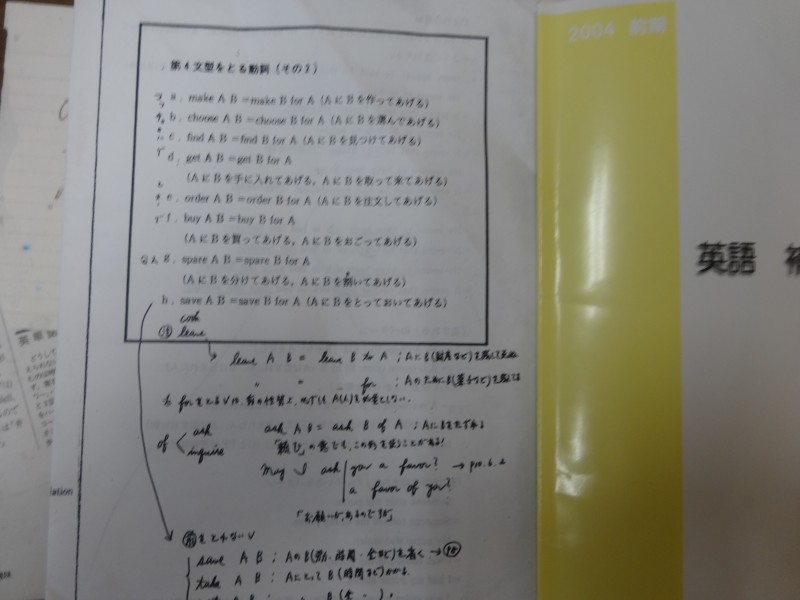 2004 前期
第4文型をとる動詞（その2）
a. make A B =make B for A（AにBを作ってあげる）
b. choose A B =choose B for A（AにBを選んであげる）
c. find A B =find B for A（AにBを見つけてあげる）
d. get A B =get B for A
（AにBを手に入れてあげる，AにBを取って来てあげる）
e. order A B =order B for A（AにBを注文してあげる）
f. buy A B =buy B for A
（AにBを買ってあげる，AにBをおごってあげる）
g. spare A B =spare B for A
（AにBを分けてあげる，AにBを割いてあげる）
h. save A B =save B for A（AにBをとっておいてあげる）
cook
leave
leave A B = leave B to A ; AにB(財産など)を残して
for ; AのためにB(菓子など)を
of
ask
inquire
ask A B = ask B of A ; AにBをたずねる
「頼む」の意でも、この形を使うことがある!
May I ask
you a favor? → pro. 6. 2
a favor of you?
「お願いがあるのですが」
前をとれないV
save A B ; AのB(労力・時間・金など)を省く →
take A B ; AにとってB(時間など)がかかる
英語
lation